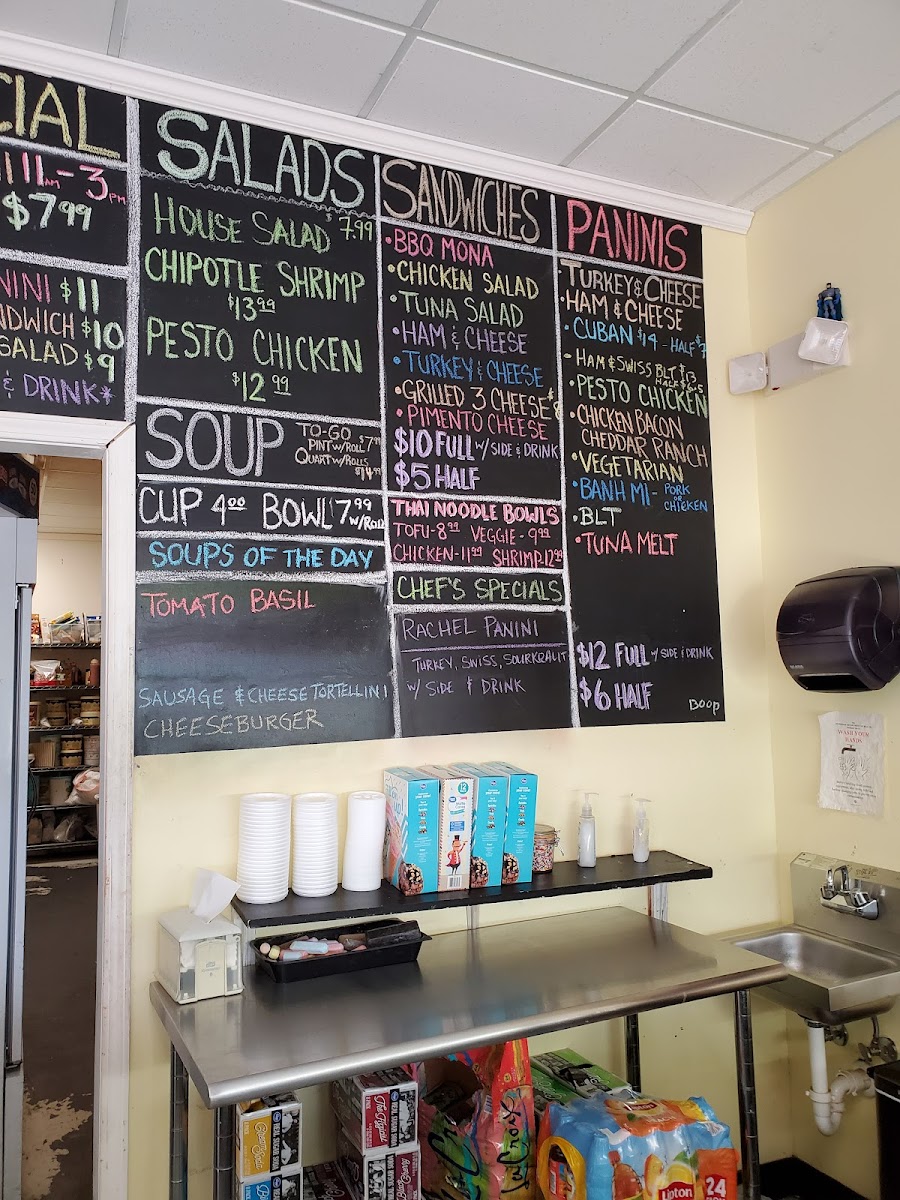 CIAL
11AM-3PM
$7.99
NINI $11
NDWICH $10
SALAD $9
& DRINK*
SALADS
HOUSE SALAD $7.99
CHIPOTLE SHRIMP
$13.99
PESTO CHICKEN
$12.99
SOUP
TO-GO
PINT W/ROLL $7.99
QUART W/ROLLS
$14.99
CUP 4.00 BOWL 7.99
W/ROLL
SOUPS OF THE DAY
TOMATO BASIL
SAUSAGE & CHEESE TORTELLINI
CHEESEBURGER
SANDWICHES
•BBQ MONA
•CHICKEN SALAD
•TUNA SALAD
•HAM & CHEESE
•TURKEY & CHEESE
•GRILLED 3 CHEESE
•PIMENTO CHEESE
$10 FULL W/ SIDE & DRINK
$5 HALF
THAI NOODLE BOWLS
TOFU-8.99 VEGGIE-9.99
CHICKEN-11.99 SHRIMP-12.99
CHEF'S SPECIALS
RACHEL PANINI
TURKEY, SWISS, SOURKRAUT
W/ SIDE & DRINK
PANINIS
TURKEY & CHEESE
•HAM & CHEESE
•CUBAN $14 - HALF $7
•HAM & SWISS BLT $13
HALF $6.5
•PESTO CHICKEN
•CHICKEN BACON
CHEDDAR RANCH
•VEGETARIAN
•BANH MI - PORK
OR
CHICKEN
•BLT
•TUNA MELT
$12 FULL W/ SIDE & DRINK
$6 HALF
Boop
WASH YOUR
HANDS
12
REAL SUGAR SODA
REAL SUGAR SODA
LaCroix
Lipton
24